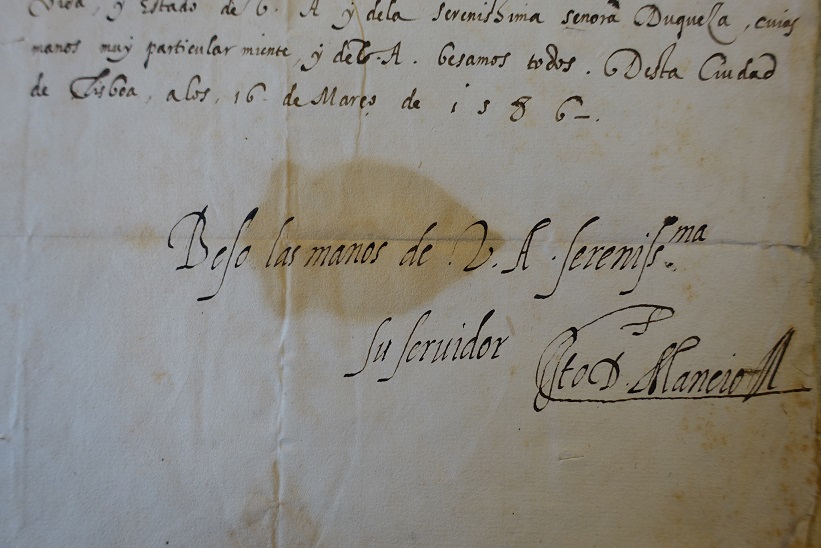 Vida, y Estado de V. A y dela serenishima señora Duqueza, cuias
manos muy particular miente, y de V A. besamos todos. Desta Ciudad
de Lisboa, a los, 16 de Março de 1586.
Beso las manos de V. A. sereniss.ma
su seruidor
Ito D. Mancio